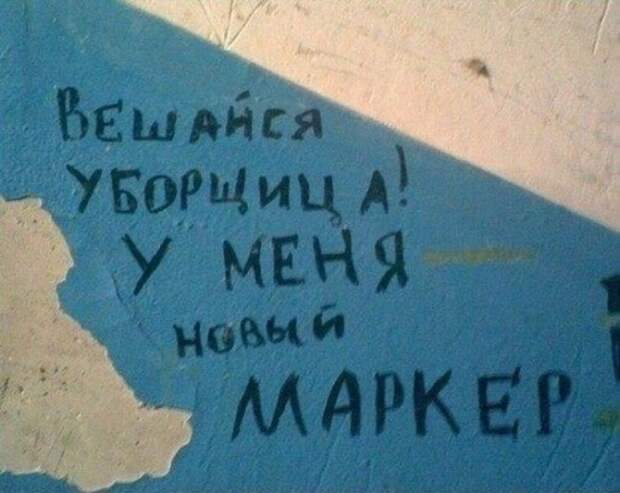 ВЕШАЙСЯ
УБОРЩИЦА!
У МЕНЯ
НОВЫЙ
МАРКЕР